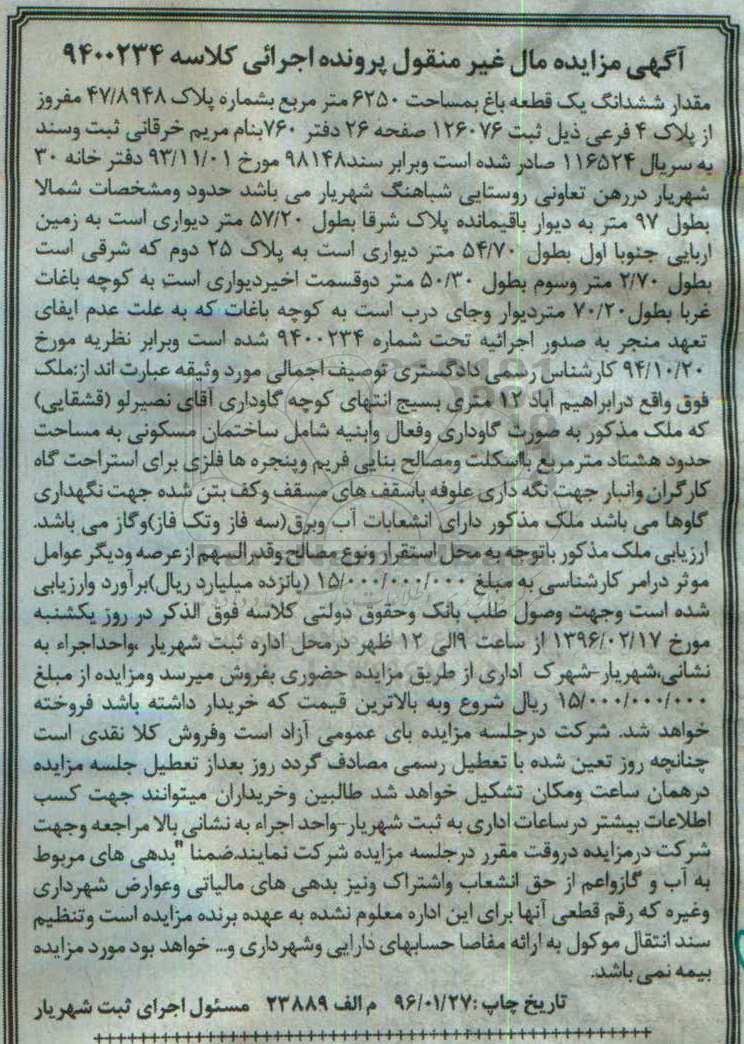 آگهی مزایده مال غیر منقول پرونده اجرائی کلاسه ۹۴۰۰۲۳۴
مقدار ششدانگ یک قطعه باغ بمساحت ۶۲۵۰ متر مربع بشماره پلاک ۴۷/۸۹۴۸ مفروز
از پلاک ۴ فرعی ذیل ثبت ۱۲۶۰۷۶ صفحه ۲۶ دفتر ۷۶۰بنام مریم خرقانی ثبت وسند
به سریال ۱۱۶۵۲۴ صادر شده است وبرابر سند۹۸۱۴۸ مورخ ۹۳/۱۱/۰۱ دفتر خانه ۳۰
شهریار دررهن تعاونی روستایی شباهنگ شهریار می باشد حدود ومشخصات شمالا
بطول ۹۷ متر به دیوار باقیمانده پلاک شرقا بطول ۵۷/۲۰ متر دیواری است به زمین
اربابی جنوبا اول بطول ۵۴/۷۰ متر دیواری است به پلاک ۲۵ دوم که شرقی است
بطول ۲/۷۰ متر وسوم بطول ۵۰/۳۰ متر دوقسمت اخیردیواری است به کوچه باغات
غربا بطول۷۰/۲۰ متردیوار وجای درب است به کوچه باغات که به علت عدم ایفای
تعهد منجر به صدور اجرائیه تحت شماره ۹۴۰۰۲۳۴ شده است وبرابر نظریه مورخ
۹۴/۱۰/۲۰ کارشناس رسمی دادگستری توصیف اجمالی مورد وثیقه عبارت اند از:ملک
فوق واقع درابراهیم آباد ۱۲ متری بسیج انتهای کوچه گاوداری آقای نصیرلو (قشقایی)
که ملک مذکور به صورت گاوداری وفعال وابنیه شامل ساختمان مسکونی به مساحت
حدود هشتاد مترمربع بااسکلت ومصالح بنایی فریم وپنجره ها فلزی برای استراحت گاه
کارگران وانبار جهت نگه داری علوفه باسقف های مسقف وکف بتن شده جهت نگهداری
گاوها می باشد ملک مذکور دارای انشعابات آب وبرق(سه فاز وتک فاز)وگاز می باشد.
ارزیابی ملک مذکور باتوجه به محل استقرار ونوع مصالح وقدرالسهم ازعرصه ودیگر عوامل
موثر درامر کارشناسی به مبلغ ۱۵/۰۰۰/۰۰۰/۰۰۰ (پانزده میلیارد ریال)برآورد وارزیابی
شده است وجهت وصول طلب بانک وحقوق دولتی کلاسه فوق الذکر در روز یکشنبه
مورخ ۱۳۹۶/۰۲/۱۷ از ساعت ۹الی ۱۲ ظهر درمحل اداره ثبت شهریار ،واحداجراء به
نشانی،شهریار-شهرک اداری از طریق مزایده حضوری بفروش میرسد ومزایده از مبلغ
۱۵/۰۰۰/۰۰۰/۰۰۰ ریال شروع وبه بالاترین قیمت که خریدار داشته باشد فروخته
خواهد شد. شرکت درجلسه مزایده بای عمومی آزاد است وفروش کلا نقدی است
چنانچه روز تعین شده با تعطیل رسمی مصادف گردد روز بعداز تعطیل جلسه مزایده
درهمان ساعت ومکان تشکیل خواهد شد طالبین وخریداران میتوانند جهت کسب
اطلاعات بیشتر درساعات اداری به ثبت شهریار-واحد اجراء به نشانی بالا مراجعه وجهت
شرکت درمزایده دروقت مقرر درجلسه مزایده شرکت نمایند.ضمنا "بدهی های مربوط
به آب و گازواعم از حق انشعاب واشتراک ونیز بدهی های مالیاتی وعوارض شهرداری
وغیره که رقم قطعی آنها برای این اداره معلوم نشده به عهده برنده مزایده است وتنظیم
سند انتقال موکول به ارائه مفاصا حسابهای دارایی وشهرداری و... خواهد بود مورد مزایده
بیمه نمی باشد.
تاریخ چاپ :۹۶/۰۱/۲۷ م الف ۲۳۸۸۹ مسئول اجرای ثبت شهریار